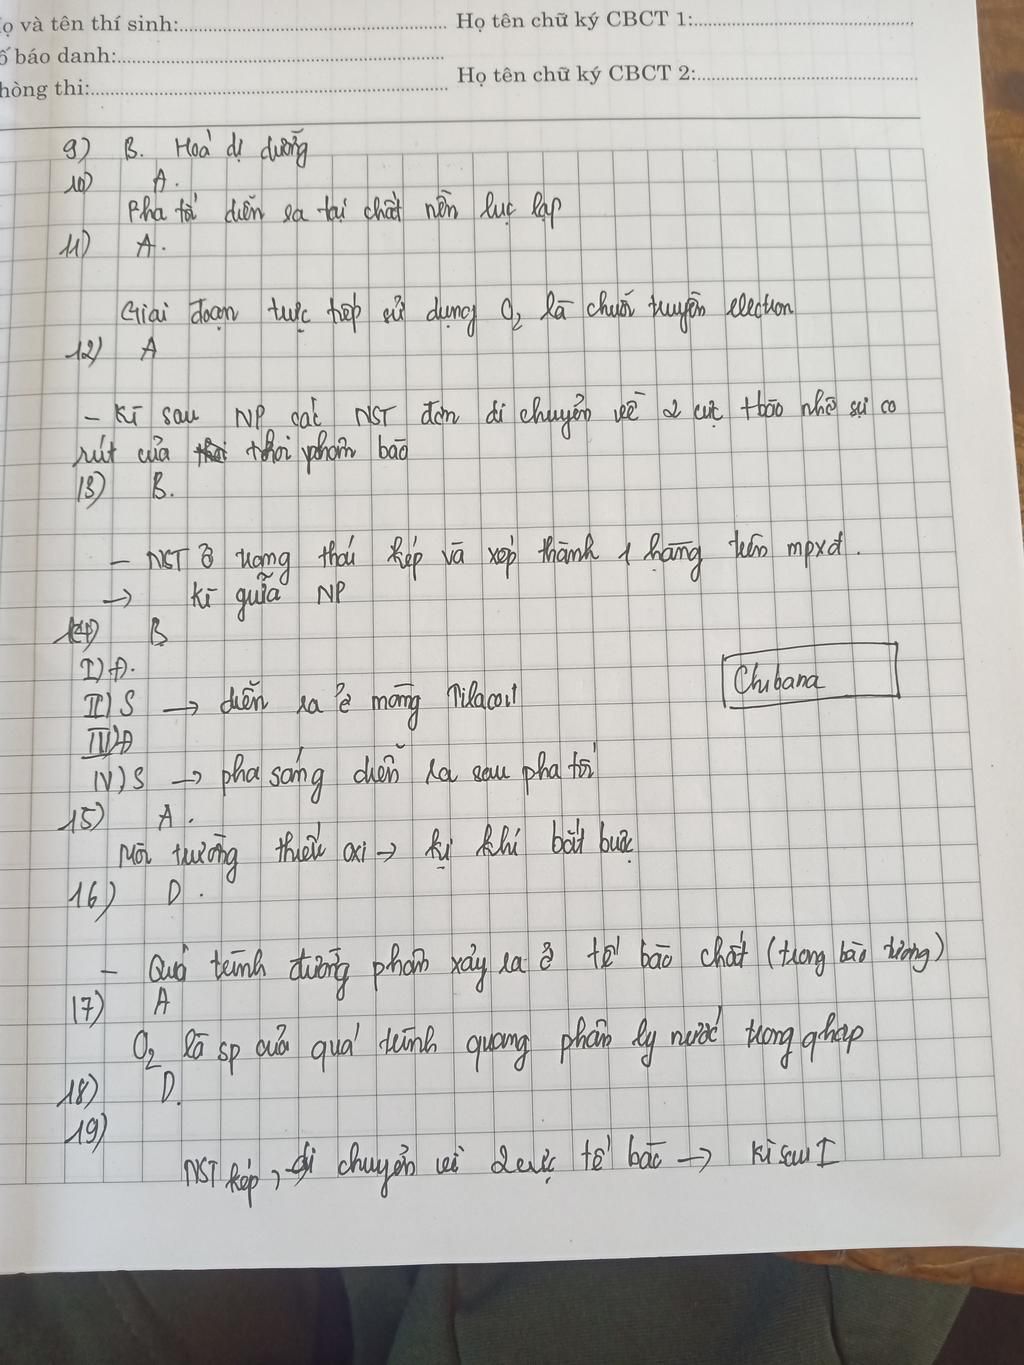 ọ và tên thí sinh:
Họ tên chữ ký CBCT 1:
ố báo danh:
Họ tên chữ ký CBCT 2:
hòng thi:
9) B. Hoá dị dưỡng
10) A.
Pha tối diễn ra tại chất nền lục lạp
11) A.
Giai đoạn trực tiếp sử dụng O₂ là chuỗi truyền electron
12) A
- Kì sau NP các NST đơn di chuyển về 2 cực tbào nhờ sự co
rút của thoi phâm bào
13) B.
- NST ở trạng thái kép và xếp thành 1 hàng trên mpxđ.
→ kì giữa NP
14) B
I) Đ.
II) S → diễn ra ở màng Tilacoit
Chibana
III) Đ
IV) S → pha sáng diễn ra sau pha tối
15) A.
Môi trường thiếu oxi → kỵ khí bắt buộc
16) D.
- Quá trình đường phân xảy ra ở tế bào chất (trong bào tương)
17) A
O₂ là sp của quá trình quang phân ly nước trong qhợp
18) D.
19)
NST kép, di chuyển về 2 cực tế bào → kì sau I